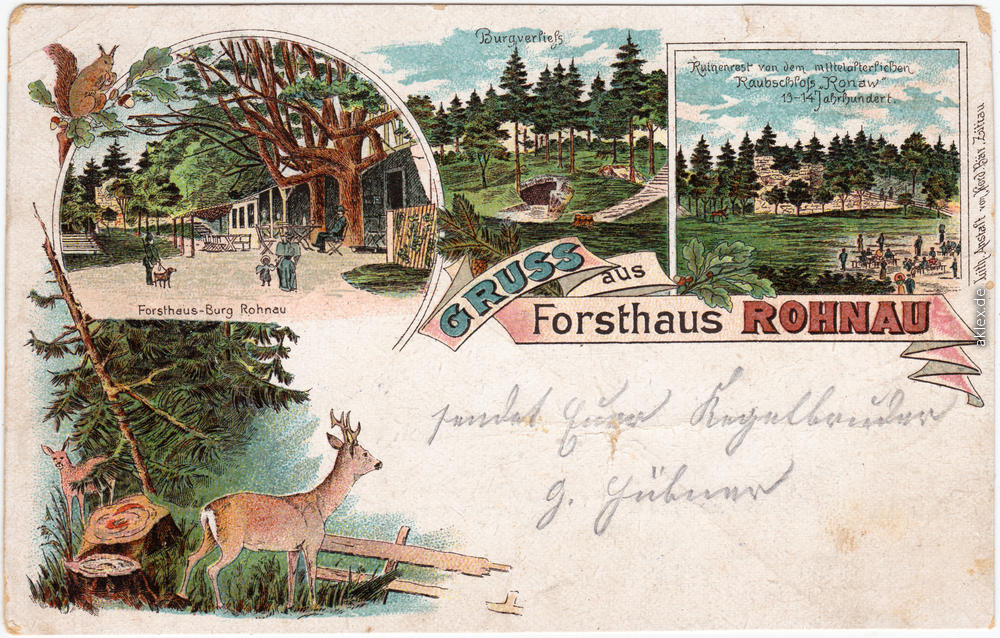 Burgverließ
Ruinenrest von dem mittelalterlichen
Raubschloß „Ronaw"
13-14 Jahrhundert.
Forsthaus-Burg Rohnau
GRUSS aus
Forsthaus ROHNAU
sendet Euer Kegelbruder
G. Hübner
Lith. Anstalt von Ferd. Zittau
aklex.de